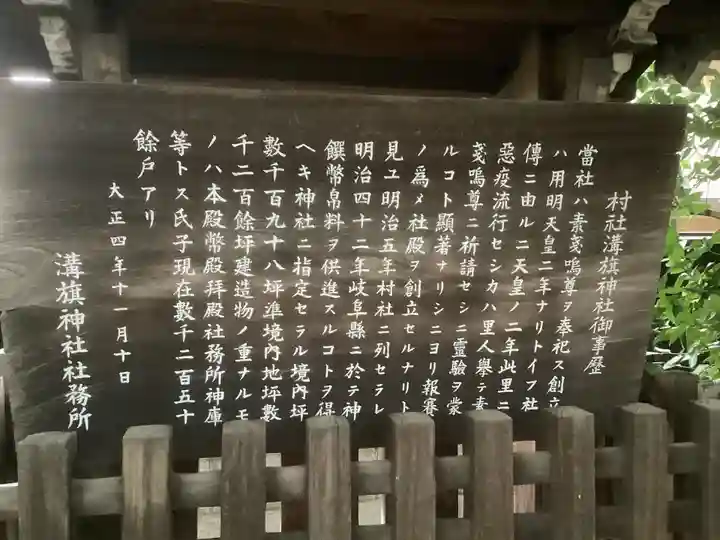 村社溝旗神社御事歴
當社ハ素戔嗚尊ヲ奉祀ス創立
ハ用明天皇二年ナリトイフ社
傳ニ由ルニ天皇ノ二年此里ニ
惡疫流行セシカハ里人擧テ素
戔嗚尊ニ祈請セシニ靈驗ヲ蒙
ルコト顯著ナリシニヨリ報賽
ノ爲メ社殿ヲ創立セルナリト
見ユ明治五年村社ニ列セラレ
明治四十二年岐阜縣ニ於テ神
饌幣帛料ヲ供進スルコトヲ得
ヘキ神社ニ指定セラル境內坪
數千百九十八坪準境內地坪數
千二百餘坪建造物ノ重ナルモ
ノハ本殿幣殿拜殿社務所神庫
等トス氏子現在數千二百五十
餘戶アリ
大正四年十一月十日
溝旗神社社務所